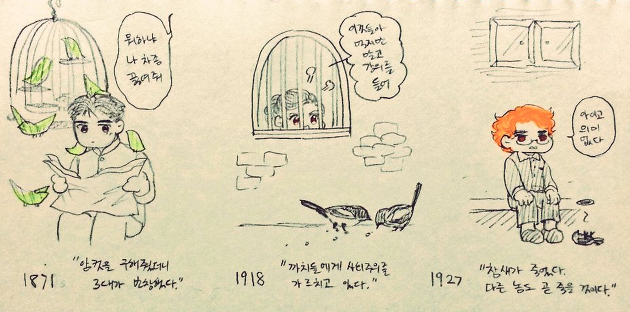 뭐하냐
나 차좀
끓여줘
1871
"암컷을 구해줬더니
3대가 번창했다."
이것들아
먹지만
말고
강의를
들어
1918
"까치들에게 사회주의를
가르치고 있다."
아이고
의미
없다
1927
"참새가 죽었다.
다른 놈도 곧 죽을 것이다."